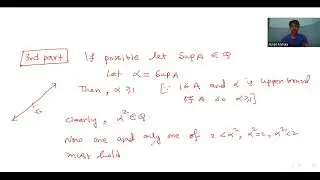 3rd part
If possible let Sup A ∈ Q
Let α = Sup A
Then, α ≥ 1 [∵ 1 ∈ A and α is upper bound
of A so α ≥ 1]
Clearly, α² ∈ Q.
Now one and only one of 2 < α², α² = 2, α² < 2
must hold